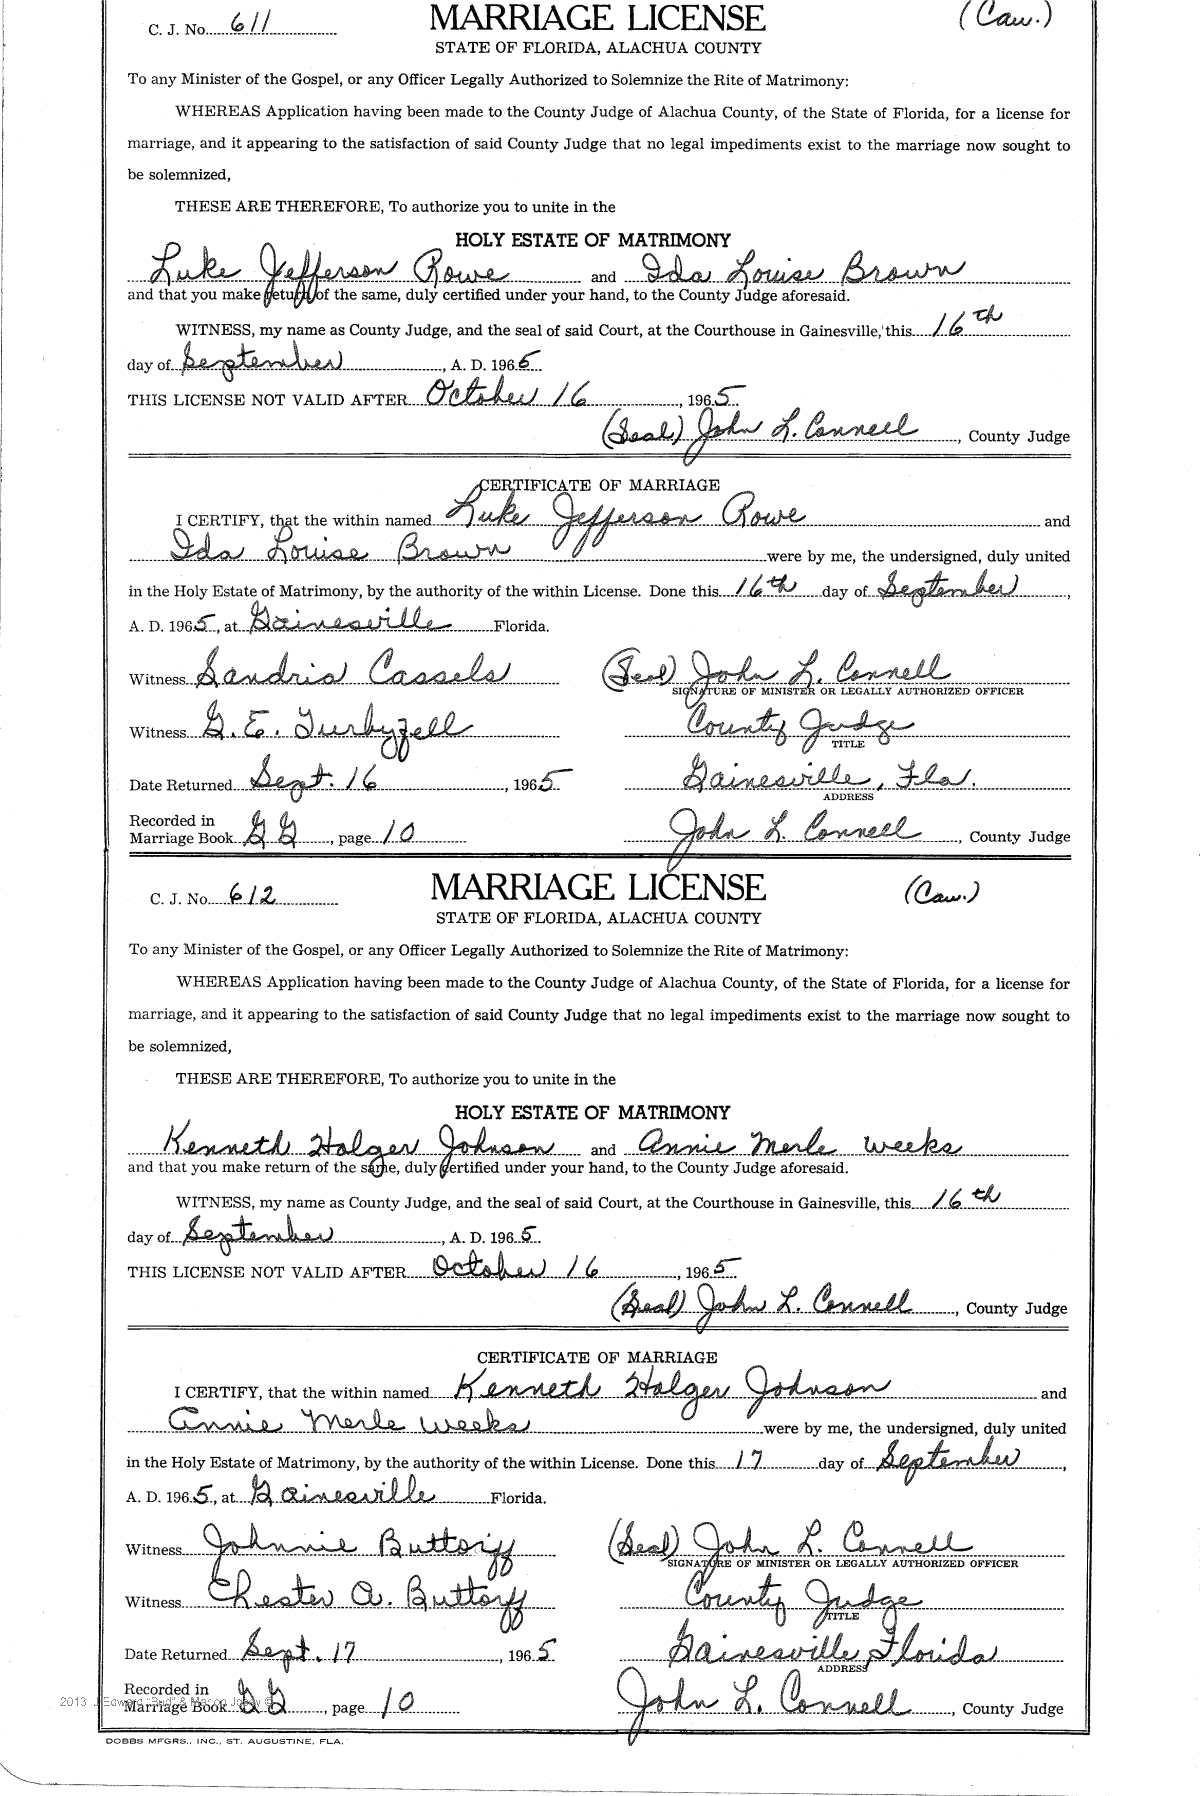 C. J. No. 611 MARRIAGE LICENSE (Cau.)
STATE OF FLORIDA, ALACHUA COUNTY
To any Minister of the Gospel, or any Officer Legally Authorized to Solemnize the Rite of Matrimony:
WHEREAS Application having been made to the County Judge of Alachua County, of the State of Florida, for a license for
marriage, and it appearing to the satisfaction of said County Judge that no legal impediments exist to the marriage now sought to
be solemnized,
THESE ARE THEREFORE, To authorize you to unite in the
HOLY ESTATE OF MATRIMONY
Luke Jefferson Rowe and Ida Louise Brown
and that you make return of the same, duly certified under your hand, to the County Judge aforesaid.
WITNESS, my name as County Judge, and the seal of said Court, at the Courthouse in Gainesville, this 16th
day of September, A. D. 1965
THIS LICENSE NOT VALID AFTER October 16, 1965
(Seal) John L. Connell, County Judge
CERTIFICATE OF MARRIAGE
I CERTIFY, that the within named Luke Jefferson Rowe and
Ida Louise Brown were by me, the undersigned, duly united
in the Holy Estate of Matrimony, by the authority of the within License. Done this 16th day of September,
A. D. 1965, at Gainesville Florida.
Witness Sandria Cassels (Seal) John L. Connell
SIGNATURE OF MINISTER OR LEGALLY AUTHORIZED OFFICER
Witness G. E. Turbyfell County Judge
TITLE
Date Returned Sept. 16, 1965 Gainesville, Fla.
ADDRESS
Recorded in
Marriage Book GG, page 10 John L. Connell, County Judge
C. J. No. 612 MARRIAGE LICENSE (Cau.)
STATE OF FLORIDA, ALACHUA COUNTY
To any Minister of the Gospel, or any Officer Legally Authorized to Solemnize the Rite of Matrimony:
WHEREAS Application having been made to the County Judge of Alachua County, of the State of Florida, for a license for
marriage, and it appearing to the satisfaction of said County Judge that no legal impediments exist to the marriage now sought to
be solemnized,
THESE ARE THEREFORE, To authorize you to unite in the
HOLY ESTATE OF MATRIMONY
Kenneth Holger Johnson and Annie Merle Weeks
and that you make return of the same, duly certified under your hand, to the County Judge aforesaid.
WITNESS, my name as County Judge, and the seal of said Court, at the Courthouse in Gainesville, this 16th
day of September, A. D. 1965
THIS LICENSE NOT VALID AFTER October 16, 1965
(Seal) John L. Connell, County Judge
CERTIFICATE OF MARRIAGE
I CERTIFY, that the within named Kenneth Holger Johnson and
Annie Merle Weeks were by me, the undersigned, duly united
in the Holy Estate of Matrimony, by the authority of the within License. Done this 17 day of September,
A. D. 1965, at Gainesville Florida.
Witness Johnnie Buttorff (Seal) John L. Connell
SIGNATURE OF MINISTER OR LEGALLY AUTHORIZED OFFICER
Witness Chester A. Buttorff County Judge
TITLE
Date Returned Sept. 17, 1965 Gainesville, Florida
ADDRESS
Recorded in
Marriage Book GG, page 10 John L. Connell, County Judge
2013 J Edward "Bud" &
DOBBS MFGRS., INC., ST. AUGUSTINE, FLA.